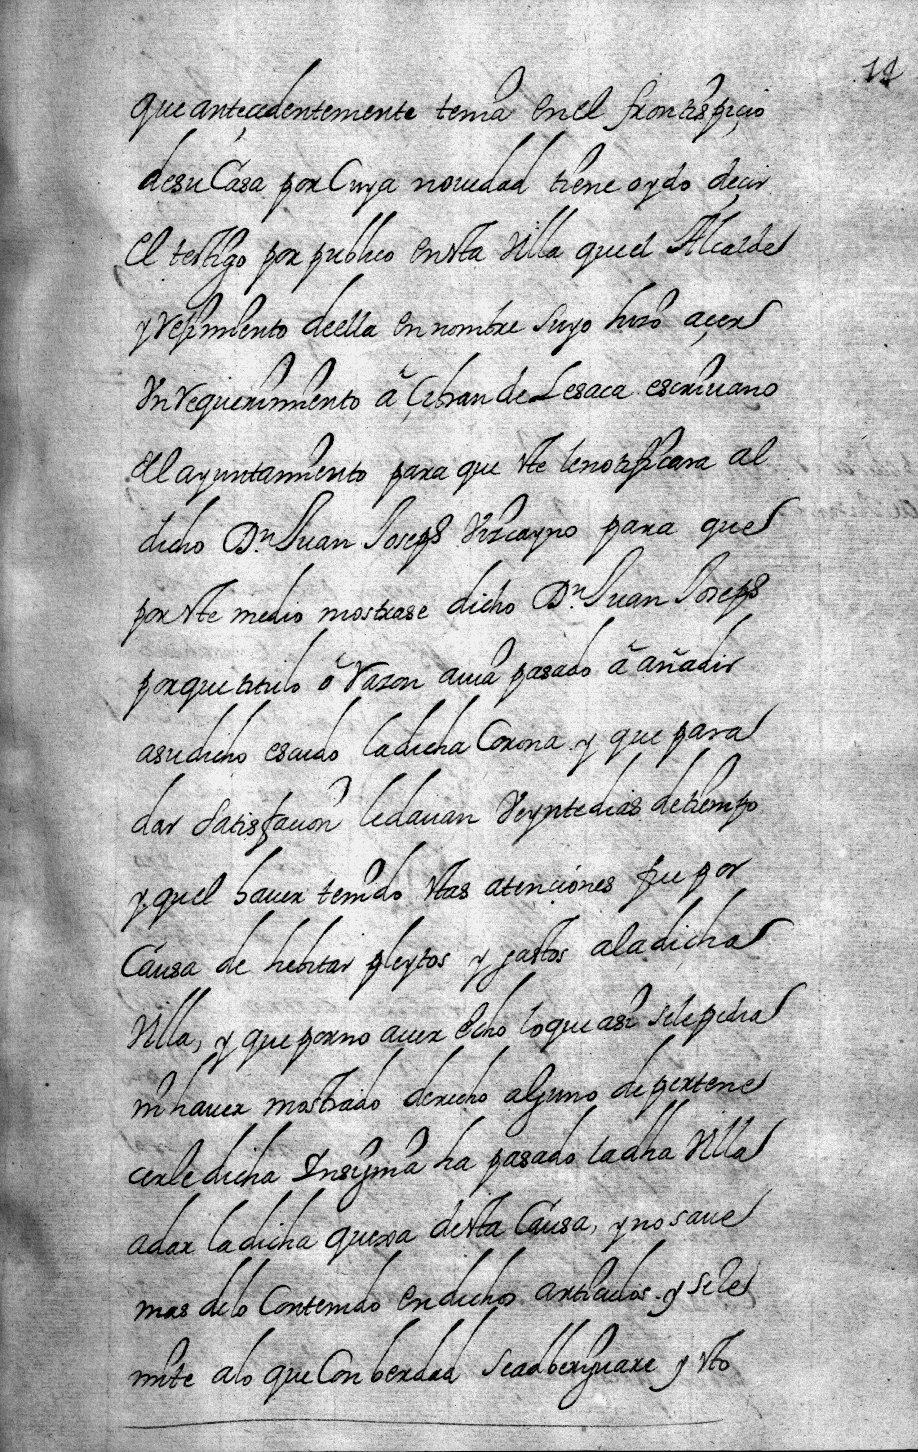 14
que antecedentemente tenia en el frontispiçio
de su Casa por Cuya nouedad tiene oydo deçir
el testigo por publico en esta Villa que el Alcalde
y rejimiento de ella en nombre suyo hizo açer
Un requerimiento â Çibran de Lesaca escriuano
del ayuntamiento para que este le notificara al
dicho Dn. Juan Joseph Vizcayno para que
por este medio mostrase dicho Dn. Juan Joseph
por que titulo ô razon auia pasado â añadir
a su dicho escudo la dicha Corona y que para
dar satisfaçion le dauan Veynte dias de tiempo
y que el hauer tenido estas atençiones fue por
Causa de hebitar pleytos y gastos a la dicha
Villa, y que por no auer echo lo que asi se le pidia
ni hauer mostrado derecho alguno de pertene
cerle dicha Insignia ha pasado la dha Villa
a dar la dicha quexa de esta Causa, y no saue
mas de lo Contenido en dichos articulos y se le
mite a lo que Con berdad se adberiguare y esto